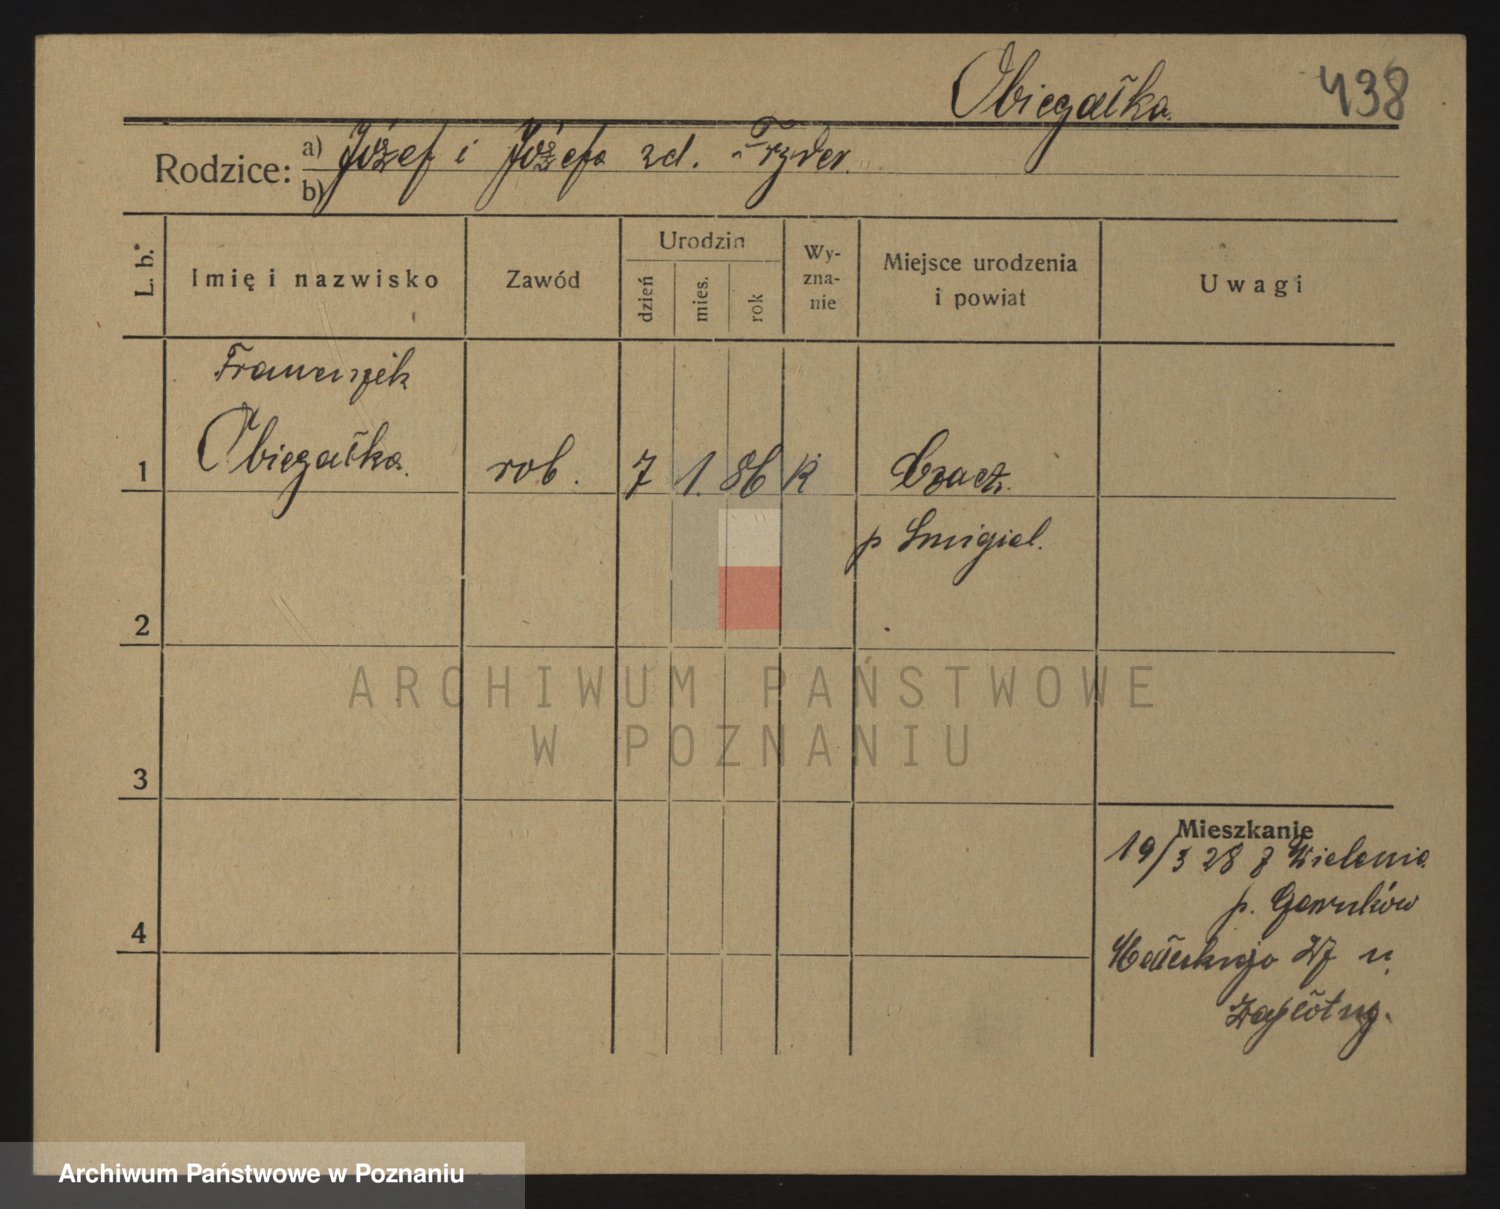 Obiegałka
438
Rodzice: a) Józef i Józefa zd. Fryder.
b)
L. b.
Imię i nazwisko
Zawód
Urodzin
dzień
mies.
rok
Wy-
zna-
nie
Miejsce urodzenia
i powiat
Uwagi
Franciszek
1 Obiegałka. rob. 7 1. 86 k Czacz.
p Smigiel.
2
3
4
Mieszkanie
19/3 28 z Wielenia
p. Czarnków
27 u
ARCHIWUM PAŃSTWOWE
W POZNANIU
Archiwum Państwowe w Poznaniu